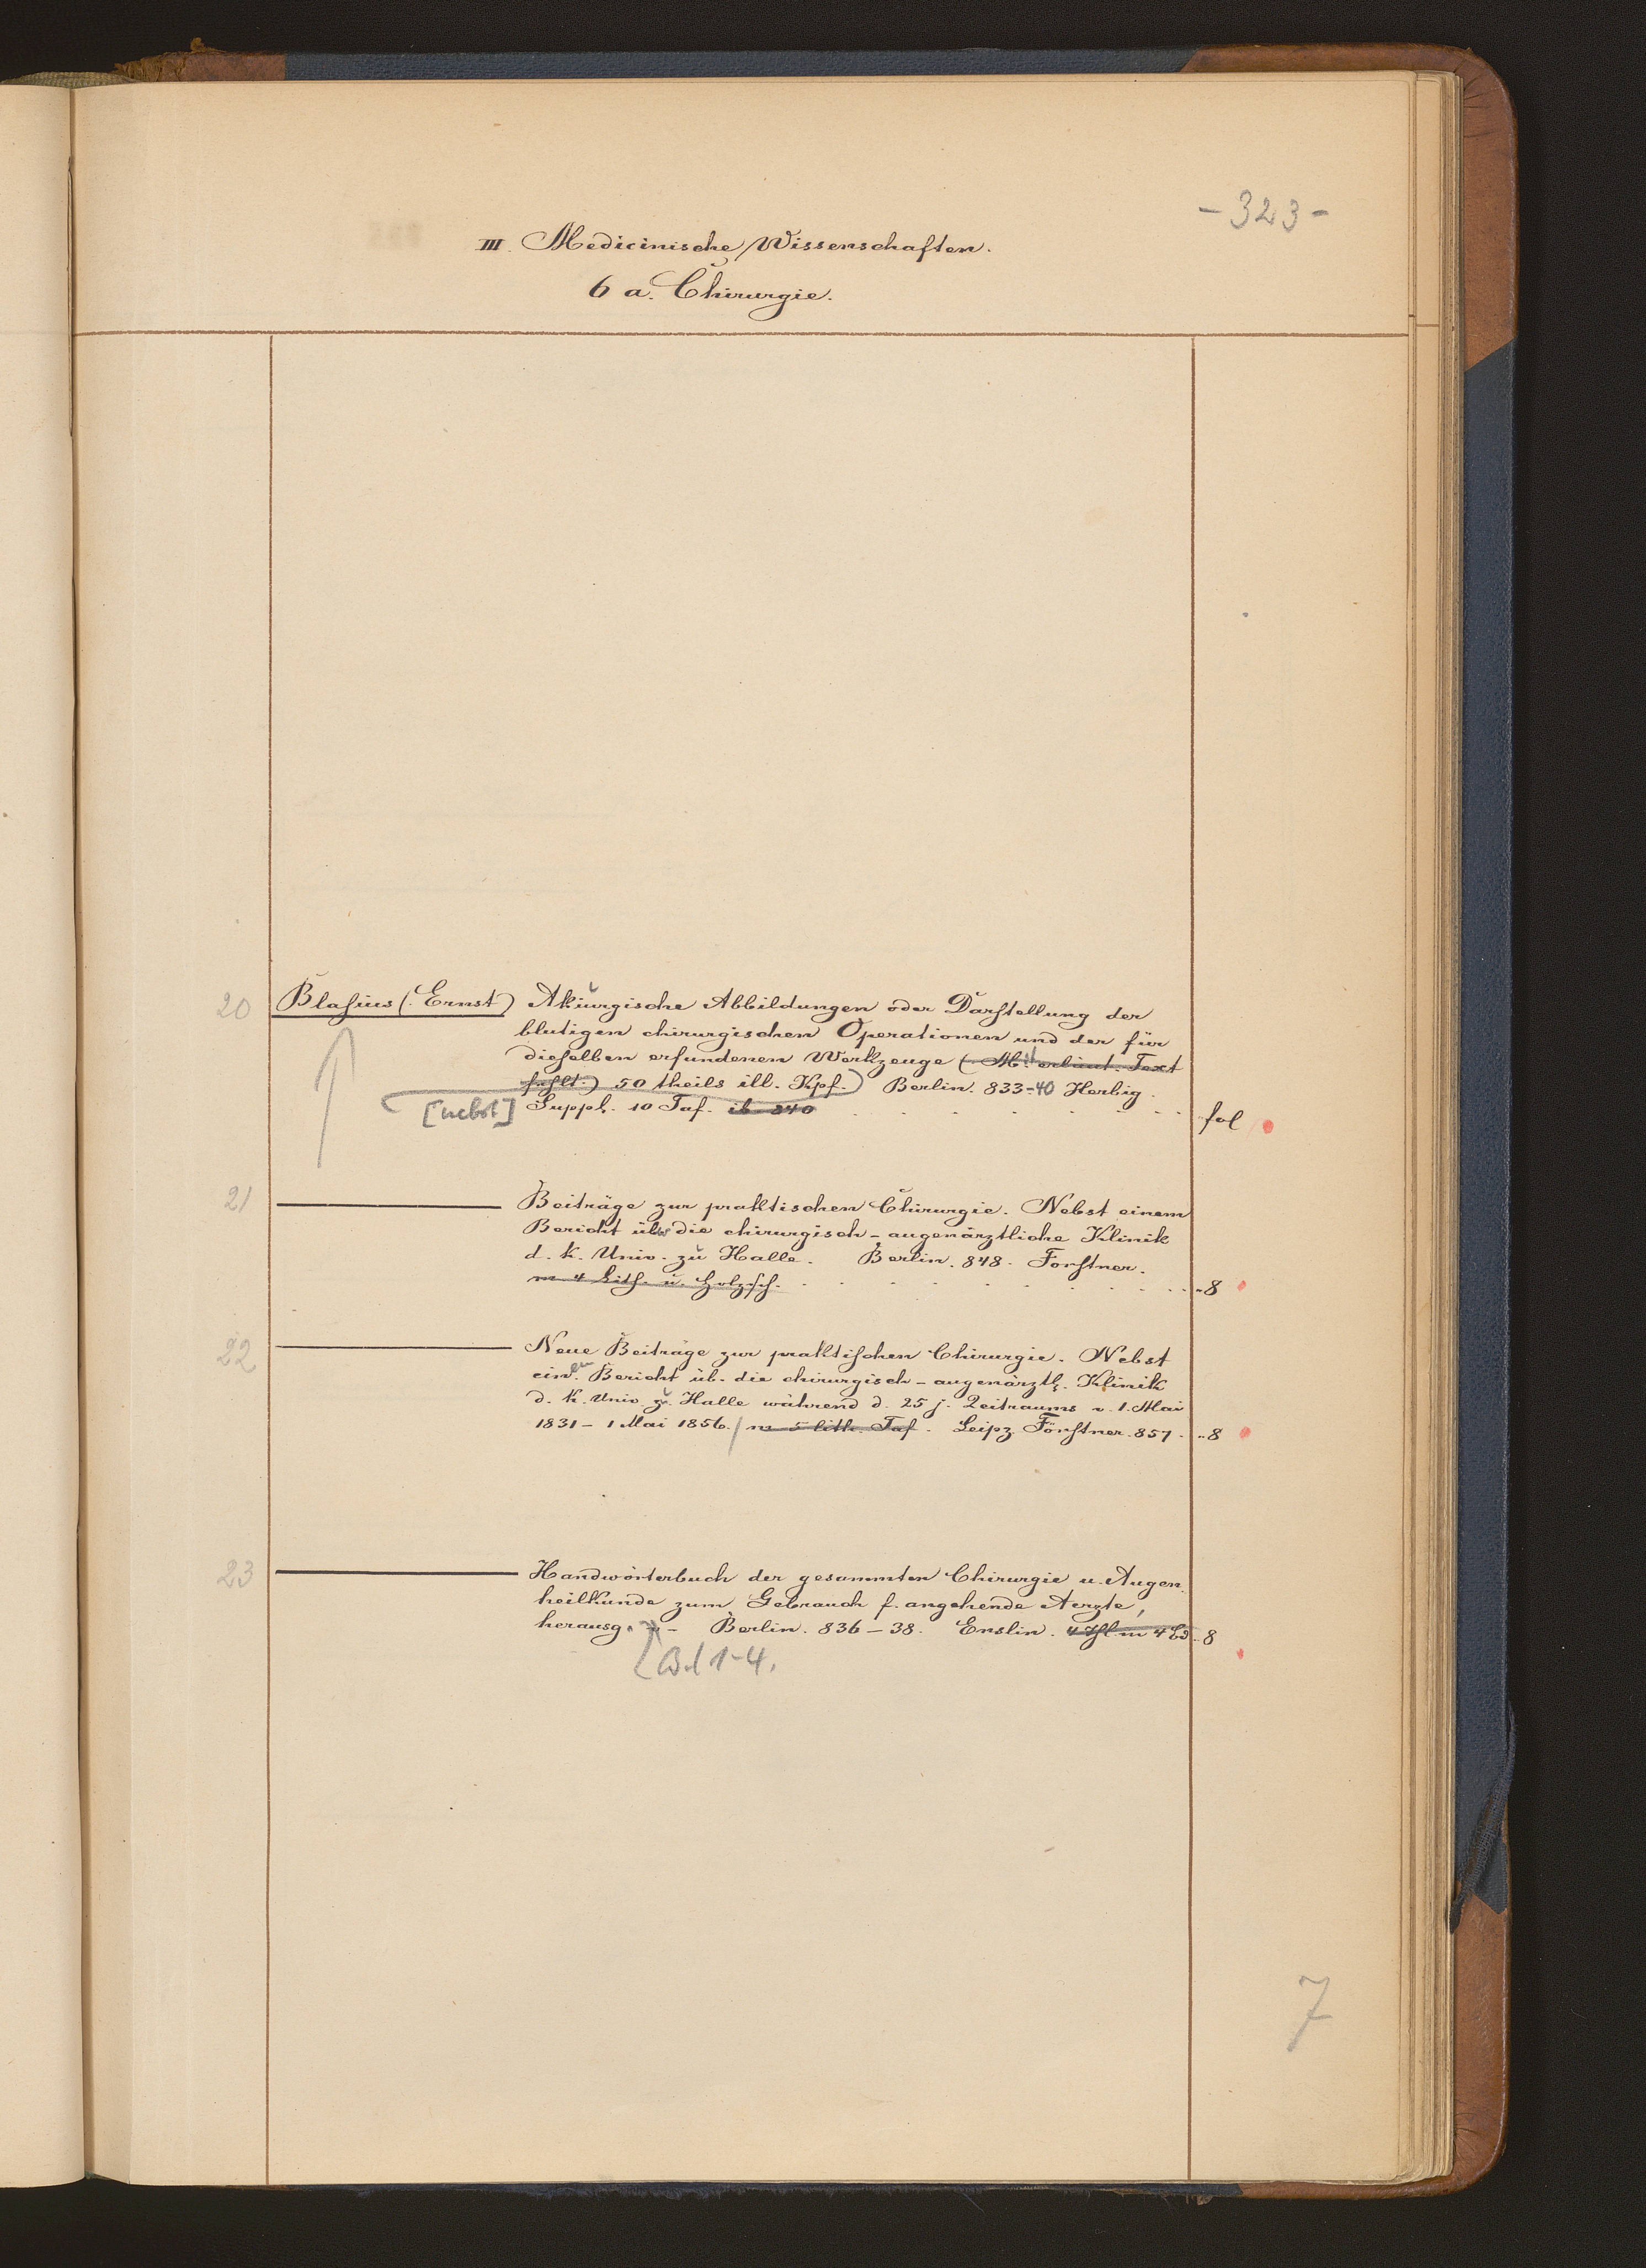 - 323 -
III. Medicinische Wissenschaften.
6 a. Chirurgie.
20 Blasius (Ernst) Akiurgische Abbildungen oder Darstellung der
blutigen chirurgischen Operationen und der für
dieselben erfundenen Werkzeuge (Mit erläut. Text
fehlt.) 50 theils ill. Kpf.) Berlin. 833-40 Herbig.
[nebst] Suppl. 10 Taf. ib 840 fol
21 Beiträge zur praktischen Chirurgie. Nebst einem
Bericht über die chirurgisch-augenärztliche Klinik
d. K. Univ. zu Halle. Berlin. 848. Forstner.
m 4 Lith. u. Holzsch. 8
22 Neue Beiträge zur praktischen Chirurgie. Nebst
einem Bericht üb. die chirurgisch-augenärztl. Klinik
d. K. Univ. zu Halle während d. 25 j. Zeitraums v. 1. Mai
1831 - 1 Mai 1856. / m 5 lith. Taf. Leipz. Förstner. 857. 8
23 Handwörterbuch der gesammten Chirurgie u. Augen
heilkunde zum Gebrauch f. angehende Aerzte,
herausg. v - Berlin. 836-38. Enslin. 4 Thl. in 4 Bd. 8
Bd 1-4.
7